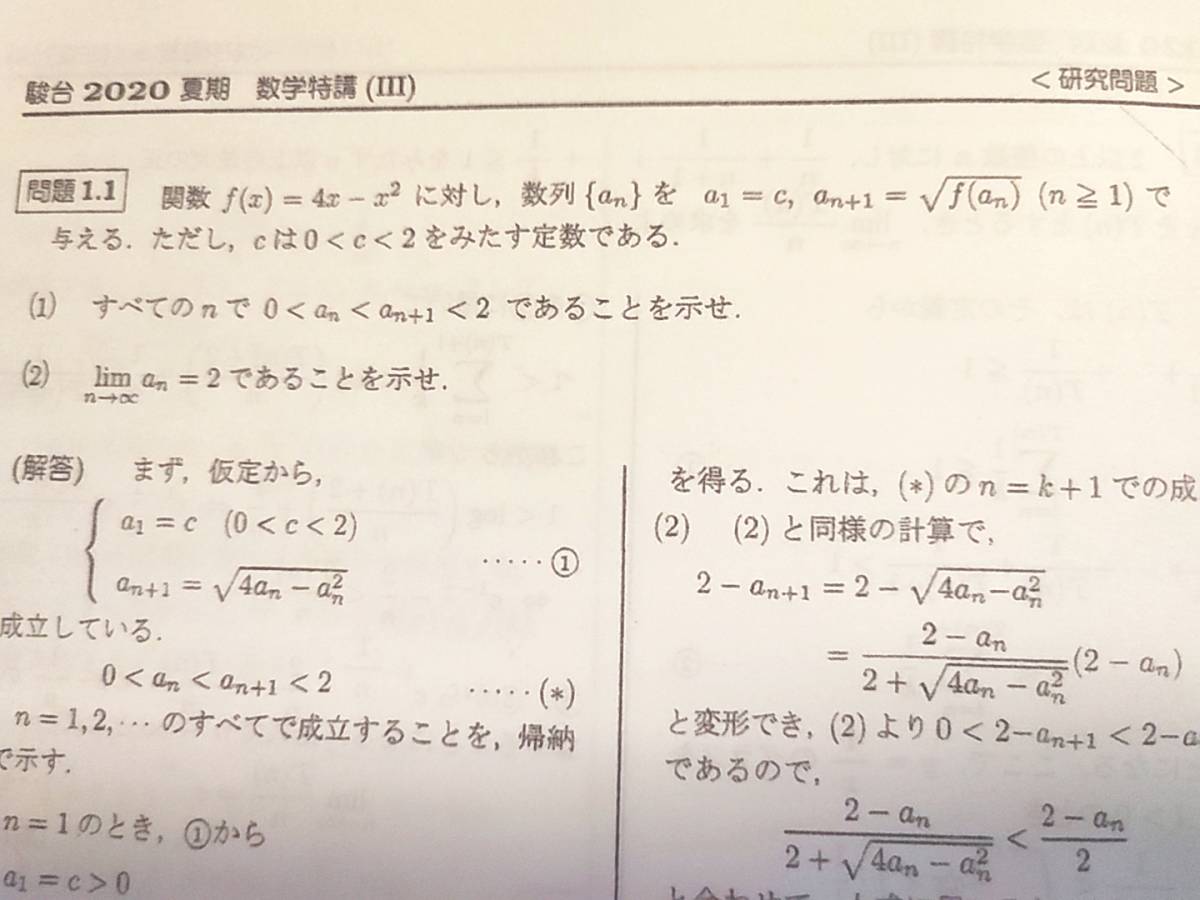 駿台 2020 夏期 数学特講 (III)
<研究問題>
問題1.1 関数 f(x) = 4x − x² に対し, 数列 {aₙ} を a₁ = c, aₙ₊₁ = √f(aₙ) (n ≧ 1) で
与える. ただし, c は 0 < c < 2 をみたす定数である.
(1) すべての n で 0 < aₙ < aₙ₊₁ < 2 であることを示せ.
(2) lim aₙ = 2 であることを示せ.
n→∞
(解答) まず, 仮定から,
a₁ = c (0 < c < 2)
aₙ₊₁ = √(4aₙ − aₙ²) ‥‥‥①
成立している.
0 < aₙ < aₙ₊₁ < 2 ‥‥‥(*)
n = 1, 2, ⋯ のすべてで成立することを, 帰納
で示す.
n = 1 のとき, ①から
a₁ = c > 0
を得る. これは, (*) の n = k + 1 での成
(2) (2) と同様の計算で,
2 − aₙ₊₁ = 2 − √(4aₙ − aₙ²)
= (2 − aₙ)/(2 + √(4aₙ − aₙ²)) (2 − aₙ)
と変形でき, (2) より 0 < 2 − aₙ₊₁ < 2 − a
であるので,
(2 − aₙ)/(2 + √(4aₙ − aₙ²)) < (2 − aₙ)/2